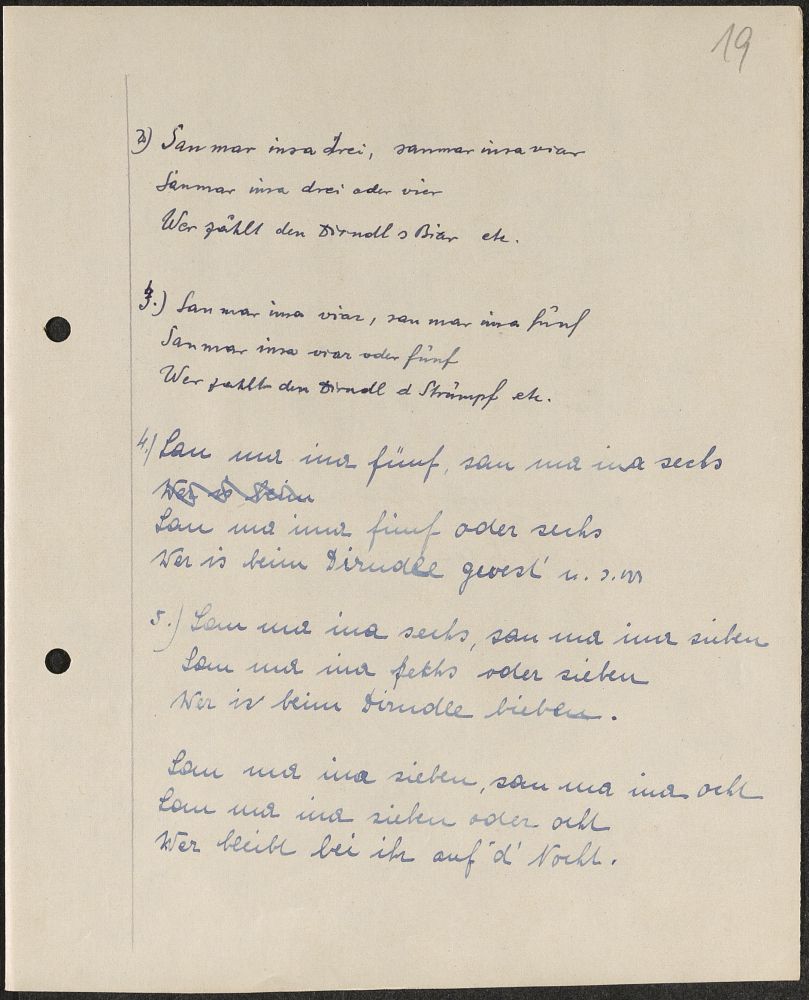 19
2) San mar insa drei, sanmar insa viar
Sanmar insa drei oder vier
Wer zåhlt den Dirndl s Biar etc.
3.) San mar insa viar, san mar insa fünf
San mar insa viar oder fünf
Wer zahlt den Dirndl d Strümpf etc.
4.) San ma ina fünf, san ma ina sechs
Wer is beim
San ma ina fünf oder sechs
Wer is beim Dirndle gwest' u. s. w
5.) San ma ina sechs, san ma ina sieben
San ma ina sechs oder sieben
Wer is' beim Dirndle bieben.
San ma ina sieben, san ma ina ocht
San ma ina sieben oder ocht
Wer bleibt bei ihr auf d' Nocht.